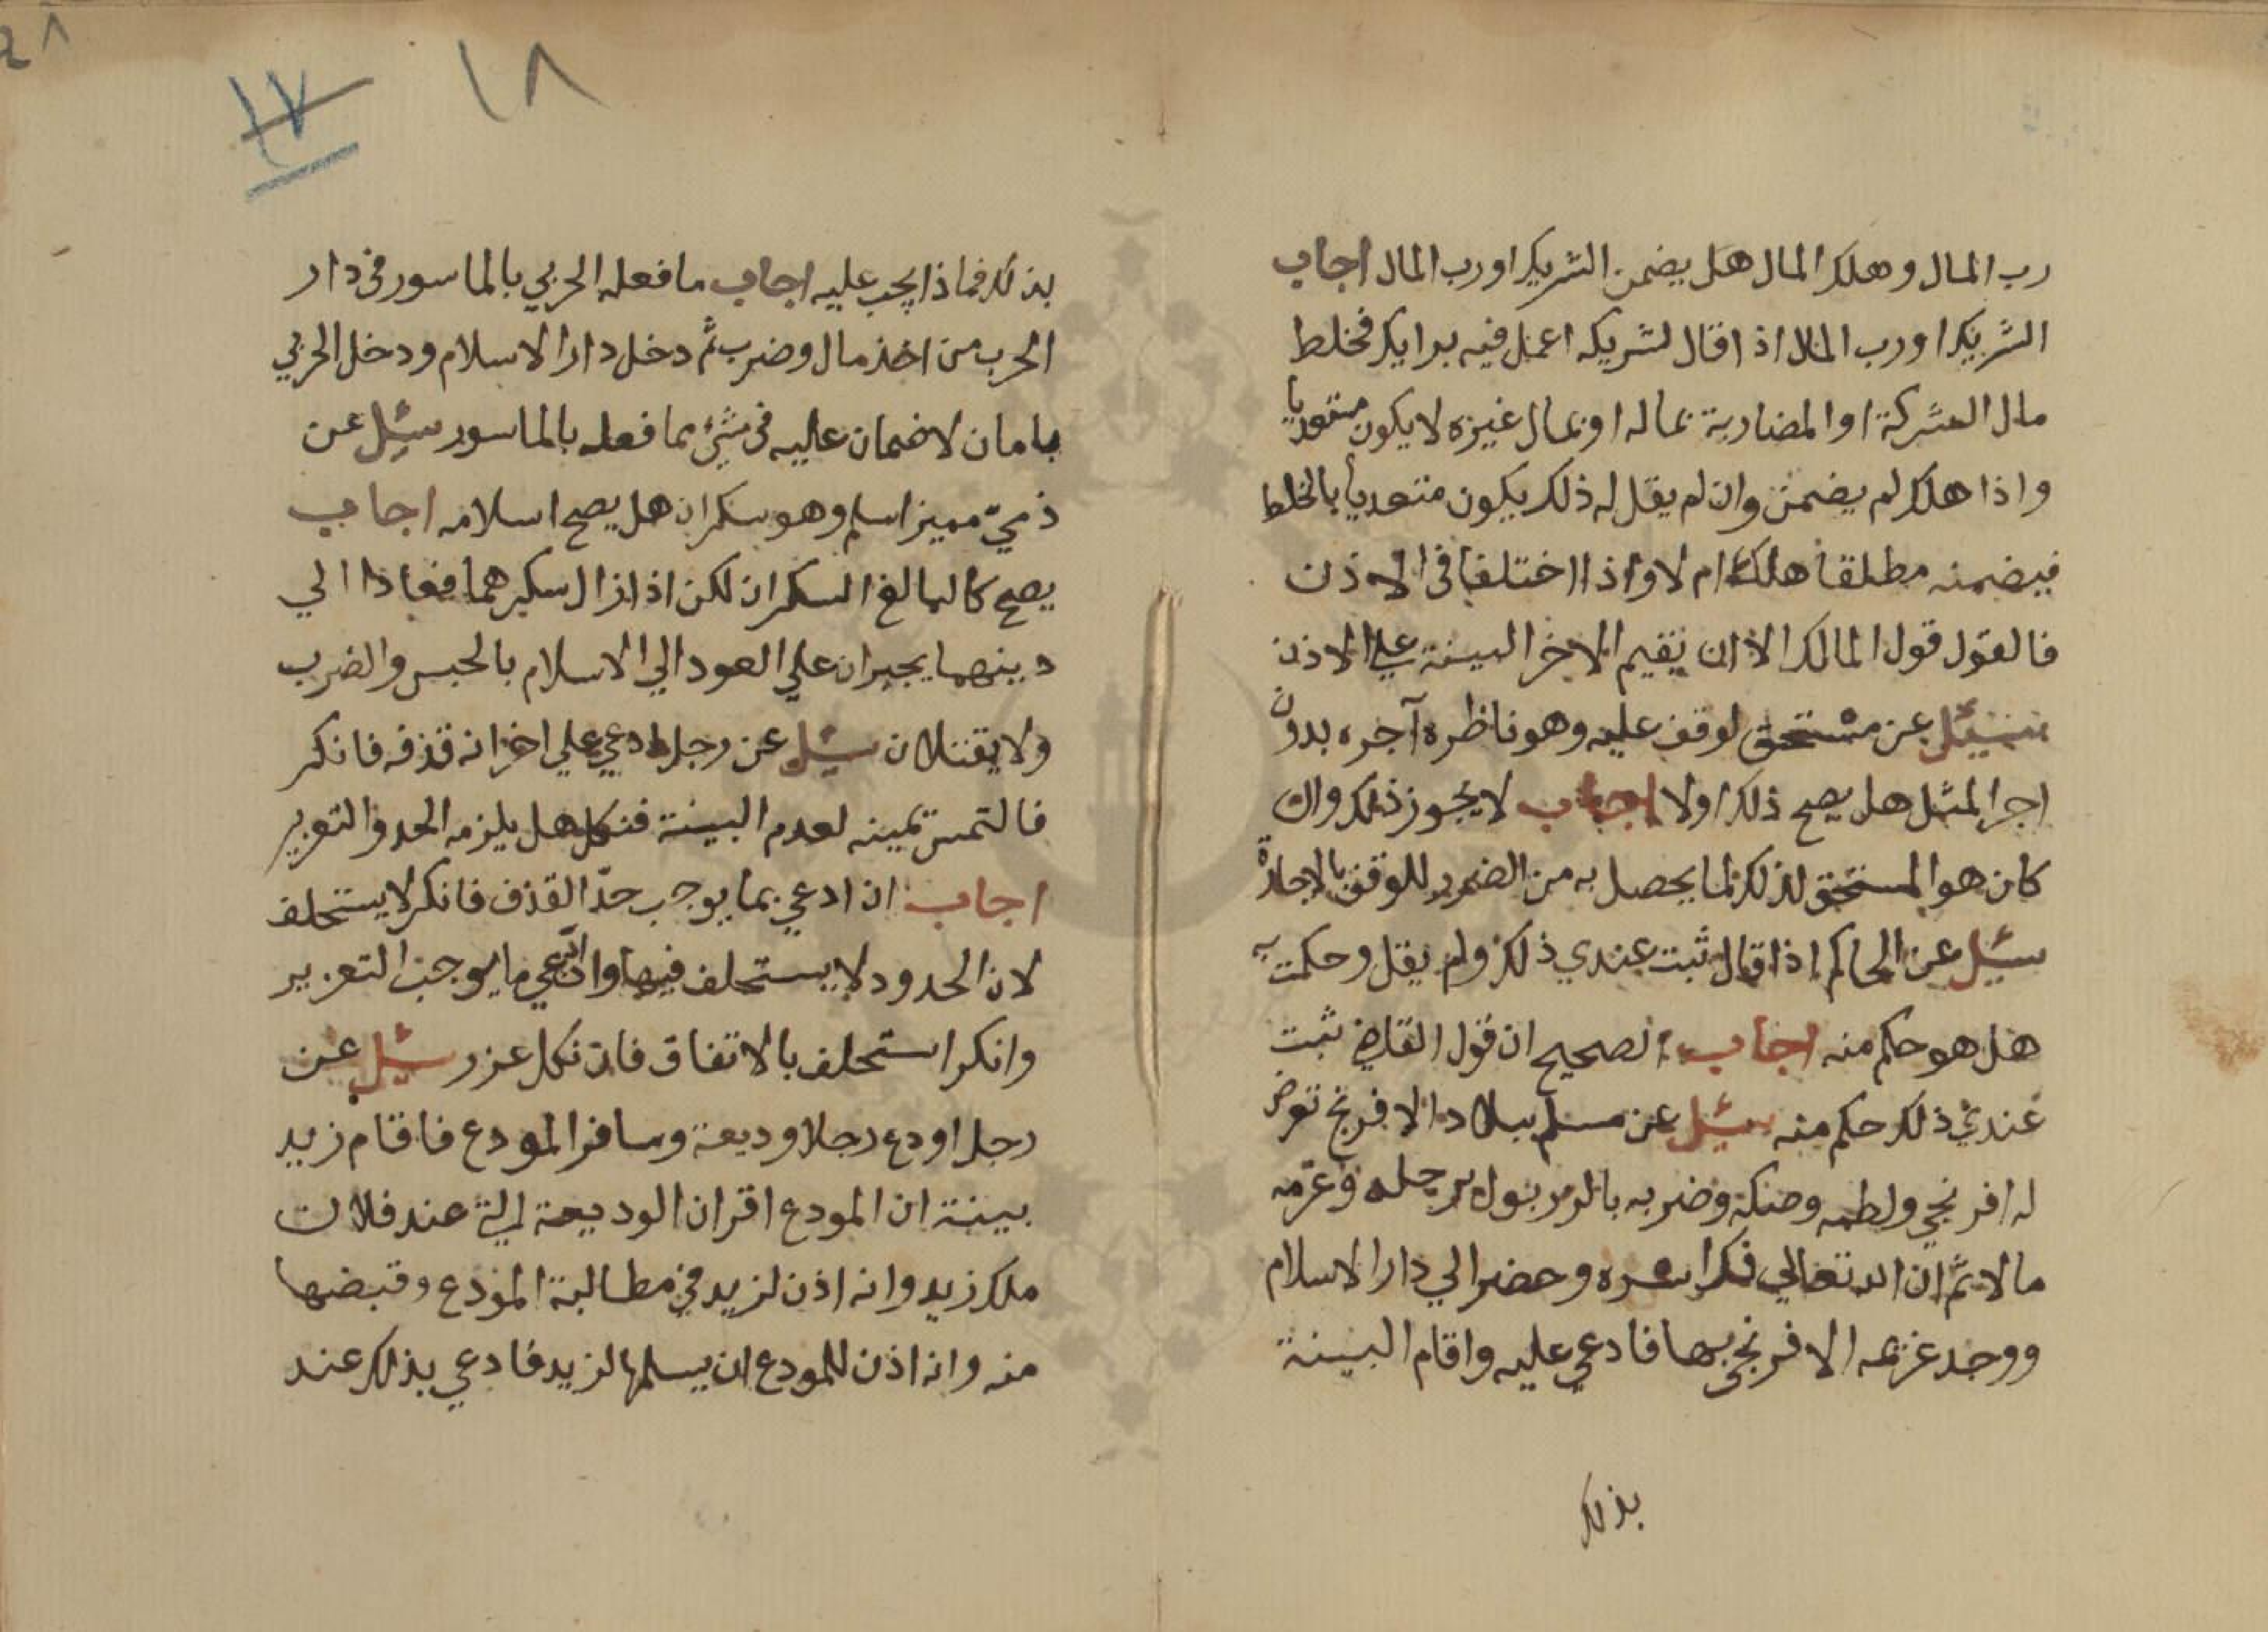 رب المال وهلك المال هل يضمن الشريك او رب المال اجاب
الشريك او رب المال اذا قال لشريكه اعمل فيه برايك فخلط
مال الشركة او المضاربة بماله او بمال غيره لا يكون متعديا
واذا هلك لم يضمن وان لم يقل له ذلك يكون متعديا بالخلط
فيضمنه مطلقا هلك ام لا واذا اختلفا في الاذن
فالقول قول المالك الا ان يقيم الاخر البينة علي الاذن
سيئل عن مستحق لوقف عليه وهو ناظره آجره بدون
اجر المثل هل يصح ذلك او لا اجاب لا يجوز ذلك وان
كان هو المستحق لذلك لما يحصل به من الضرر للوقف بالاجارة
سيئل عن الحاكم اذا قال ثبت عندي ذلك ولم يقل وحكمت به
هل هو حكم منه اجاب الصحيح ان قول القاضي ثبت
عندي ذلك حكم منه سيئل عن مسلم ببلاد الافرنج تعرض
له افرنجي ولطمه وصكه وضربه برجله وغرمه
مالا ثم ان الله تعالي فك اسره وحضر الي دار الاسلام
ووجد غريمه الافرنجي بها فادعي عليه واقام البينة
بذلك
١٨
١٧
بذلك فماذا يجب عليه اجاب ما فعله الحربي بالماسور في دار
الحرب من اخذ مال وضرب ثم دخل دار الاسلام ودخل الحربي
بامان لا ضمان عليه في شيئ مما فعله بالماسور سيئل عن
ذميّ مميز اسلم وهو سكران هل يصح اسلامه اجاب
يصح كالبالغ السكران لكن اذا زال سكرهما فعادا الي
دينهما يجبران علي العود الي الاسلام بالحبس والضرب
ولا يقتلان سيئل عن رجل ادعي علي اخر انه قذفه فانكر
فالتمس يمينه لعدم البينة فنكل هل يلزمه الحد والتعزير
اجاب ان ادعي بما يوجب حدّ القذف فانكر لا يستحلف
لان الحدود لا يستحلف فيها وان ادعي ما يوجب التعزير
وانكر استحلف بالاتفاق فان نكل عزر سيئل عن
رجل اودع رجلا وديعة وسافر المودع فاقام زيد
بينة ان المودع اقر ان الوديعة التي عند فلان
ملك زيد وانه اذن لزيد في مطالبة المودع وقبضها
منه وانه اذن للمودع ان يسلمها لزيد فادعي بذلك عند